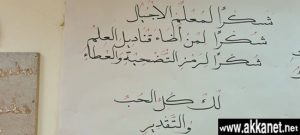 شكراً لمعلم الأجيال
شكراً لمن أضاء قناديل العلم
شكراً لرمز التضحية والعطاء
لك كل الحب
والتقدير
www.akkanet.net